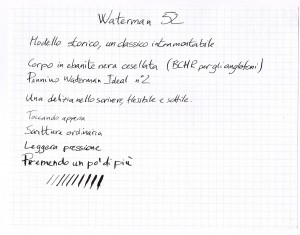 Waterman 52
Modello storico, un classico intramontabile
Corpo in ebanite nera cesellata (BCHR per gli anglofoni)
Pennino Waterman Ideal n°2
Una delizia nello scrivere, flessibile e sottile.
Toccando appena
Scrittura ordinaria
Leggera pressione
Premendo un po' di più